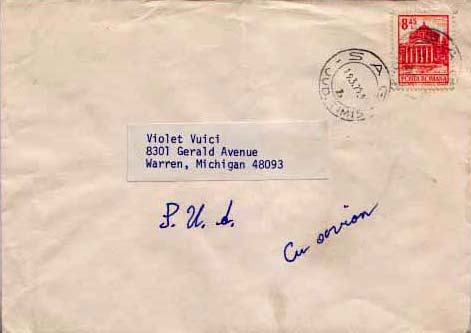 8 45
POSTA ROMANA
Violet Vuici
8301 Gerald Avenue
Warren, Michigan 48093
S. U. A.
Cu avion